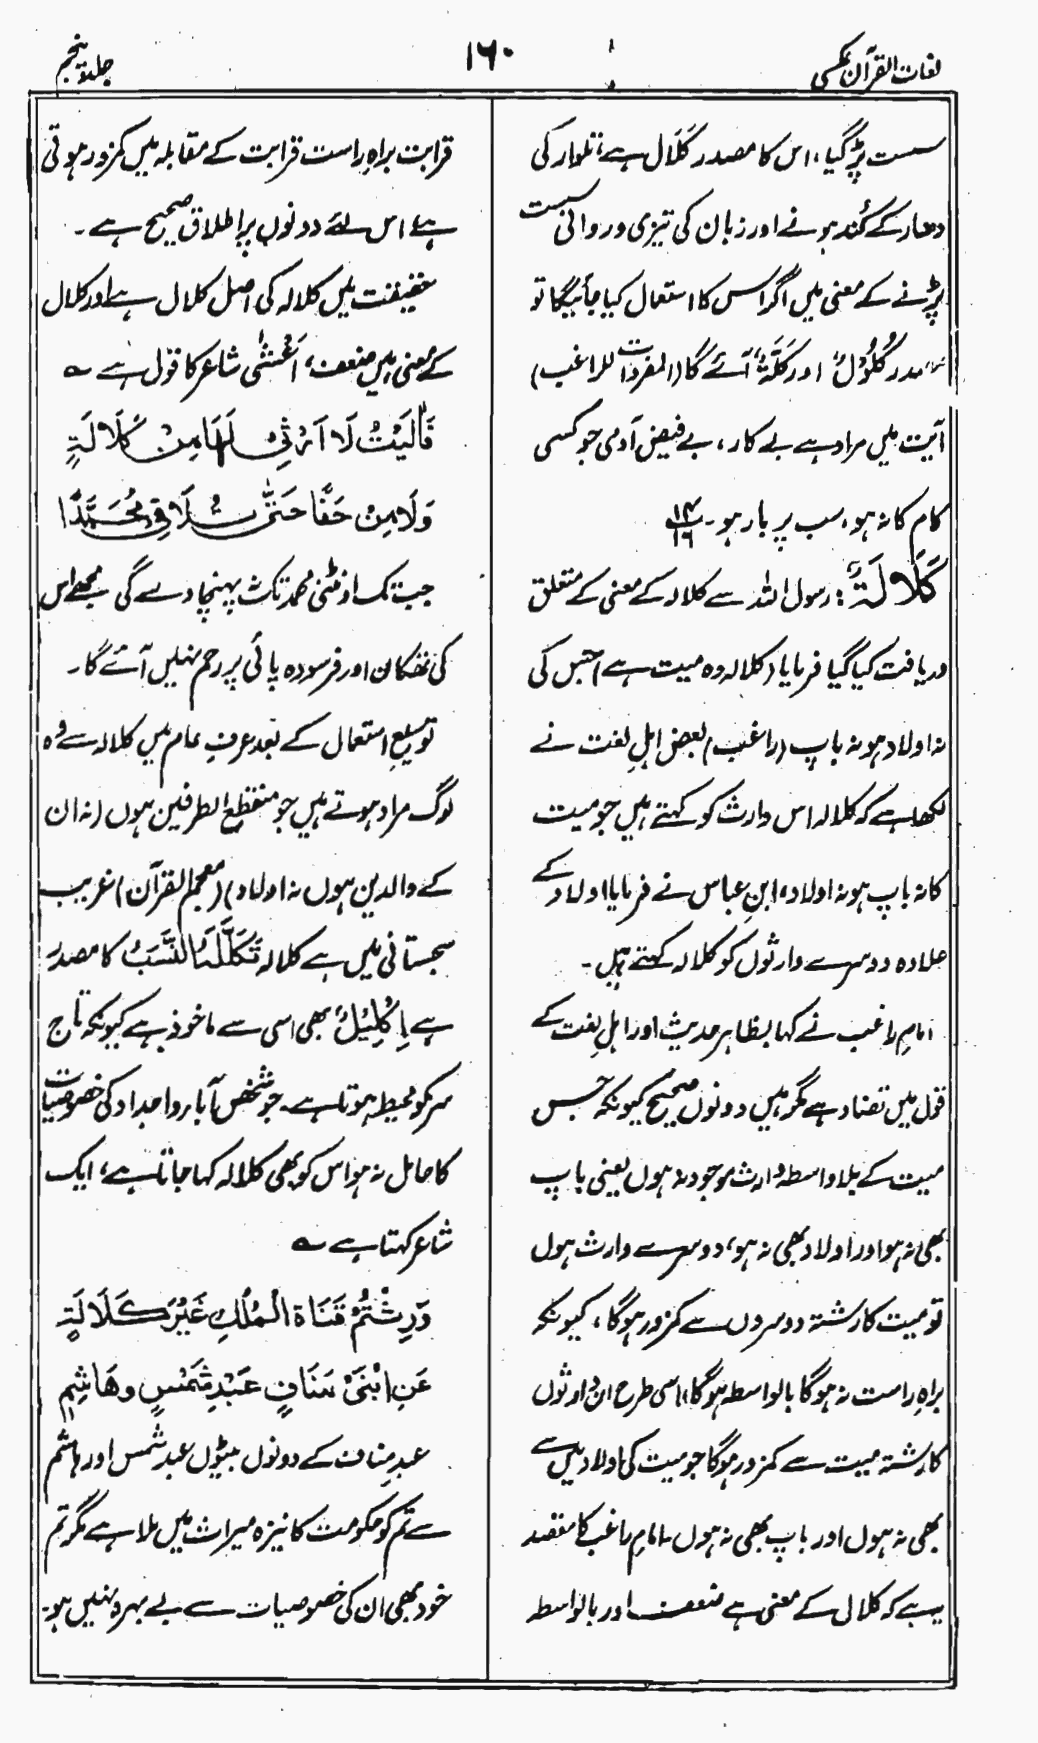 لغات القرآن عکسی
۱۶۰
جلد پنجم
سست پڑ گیا، اس کا مصدر کَلَال ہے، تلوار کی
دھار کے کُند ہونے اور زبان کی تیزی و روانی سست
پڑنے کے معنی میں اگر اس کا استعمال کیا جائیگا تو
مصدر کُلُوْلٌ اور کَلَّةٌ آئے گا (المفردات للراغب)
آیت میں مراد ہے بے کار، بے فیض آدمی جو کسی
کام کا نہ ہو، سب پر بار ہو۔ ۱۴/۱۶
کَلَالَةً: رسول اللہ سے کلالہ کے معنی کے متعلق
دریافت کیا گیا فرمایا (کلالہ وہ میت ہے) جس کی
نہ اولاد ہو نہ باپ (راغب) بعض اہلِ لغت نے
لکھا ہے کہ کلالہ اس وارث کو کہتے ہیں جو میت
کا نہ باپ ہو نہ اولاد، ابنِ عباس نے فرمایا اولاد کے
علاوہ دوسرے وارثوں کو کلالہ کہتے ہیں۔
امام راغب نے کہا بظاہر حدیث اور اہلِ لغت کے
قول میں تضاد ہے مگر ہیں دونوں صحیح کیونکہ جس
میت کے بلا واسطہ وارث موجود نہ ہوں یعنی باپ
بھی نہ ہو اور اولاد بھی نہ ہو، دوسرے وارث ہوں
تو میت کا رشتہ دوسروں سے کمزور ہوگا، کیونکہ
براہِ راست نہ ہوگا بالواسطہ ہوگا، اسی طرح ان وارثوں
کا رشتہ میت سے کمزور ہوگا جو میت کی اولاد میں سے
بھی نہ ہوں اور باپ بھی نہ ہوں۔ امام راغب کا مقصد
یہ ہے کہ کلال کے معنی ہے ضعف اور بالواسطہ
قرابت براہِ راست قرابت کے مقابلہ میں کمزور ہوتی
ہے، اس لئے دونوں پر اطلاق صحیح ہے۔
حقیقت میں کلالہ کی اصل کلال ہے اور کلال
کے معنی ہیں ضعف، اَعْشٰی شاعر کا قول ہے ؎
فَاٰلَیْتُ لَا اَرْثِیْ لَهَا مِنْ کَلَالَةٍ
وَلَا مِنْ حَفًا حَتّٰی تُلَاقِیْ مُحَمَّدًا
جب تک اونٹنی محمد تک نہ پہنچا دے گی مجھے اس
کی تھکان اور فرسودہ پائی پر رحم نہیں آئے گا۔
توسیعِ استعمال کے بعد عرفِ عام میں کلالہ سے وہ
لوگ مراد ہوتے ہیں جو منقطع الطرفین ہوں (نہ ان
کے والدین ہوں نہ اولاد) (معجم القرآن) غریب
سجستانی میں ہے کلالہ تَکَلَّلَهُ النَّسَبُ کا مصدر
ہے اِکْلِیْلٌ بھی اسی سے ماخوذ ہے کیونکہ تاج
سر کو محیط ہوتا ہے۔ جو شخص آباء و اجداد کی خصوصیات
کا حامل نہ ہو اس کو بھی کلالہ کہا جاتا ہے، ایک
شاعر کہتا ہے ؎
وَرِثْتُمْ قَنَاةَ الْمُلْكِ غَیْرَ کَلَالَةٍ
عَنِ ابْنَیْ مَنَافٍ عَبْدِ شَمْسٍ وهَاشِمٍ
عبدِ مناف کے دونوں بیٹوں عبد شمس اور ہاشم
سے تم کو حکومت کا نیزہ میراث میں ملا ہے مگر تم
خود بھی ان کی خصوصیات سے بے بہرہ نہیں ہو۔